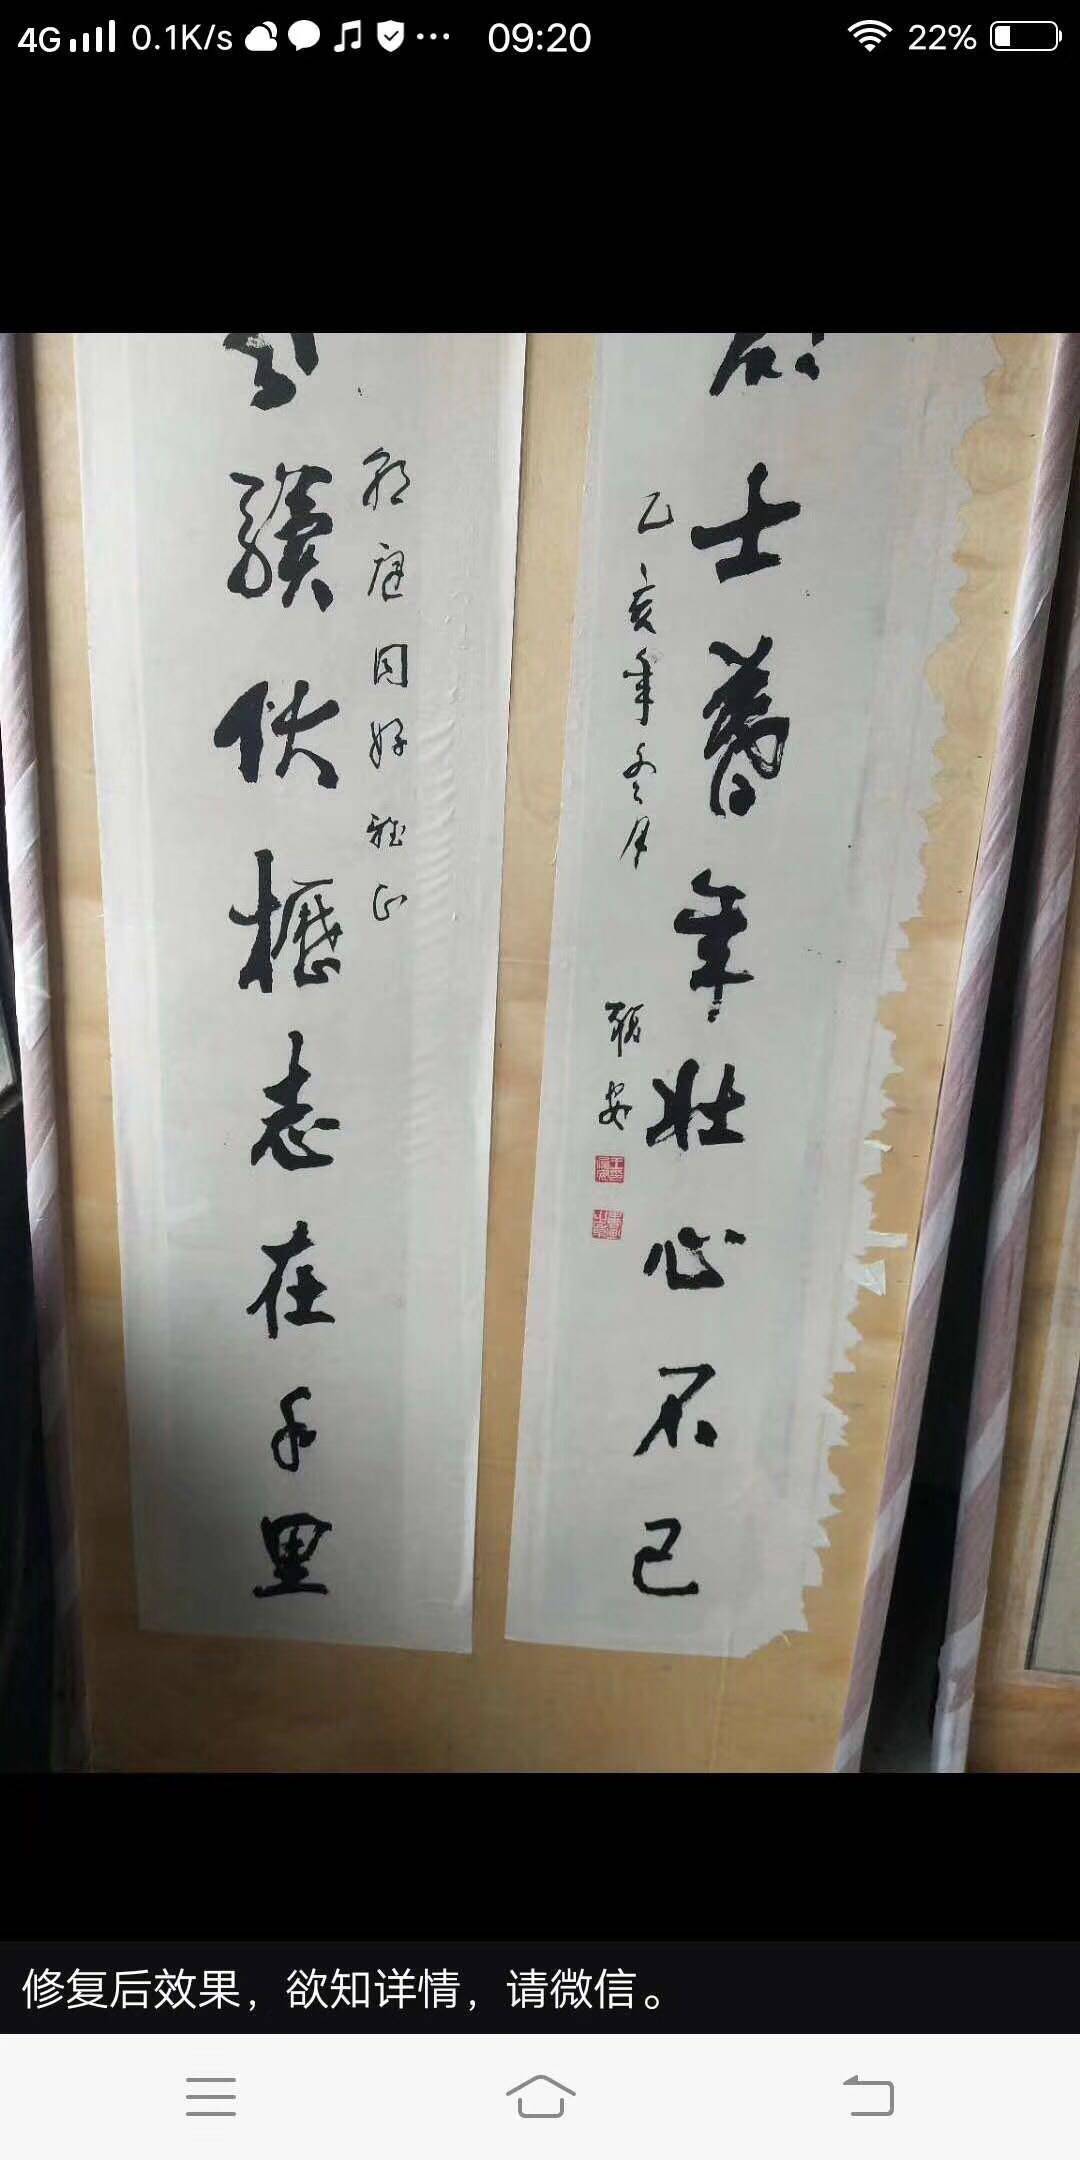 4G 0.1K/s ··· 09:20 22%
士暮年壮心不已
乙亥年冬月
驥伏櫪志在千里
庭同好雅正
修复后效果，欲知详情，请微信。